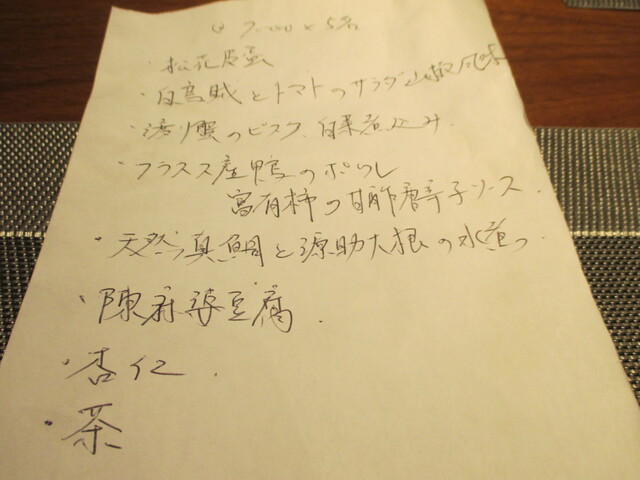 @ 7000 × 5名
・松花皮蛋
・白烏賊とトマトのサラダ山椒風味
・渡り蟹のビスク、白菜煮込み.
・フランス産鴨のポワレ
富有柿の甘酢唐辛子ソース.
・天然真鯛と源助大根の水煮.
・陳麻婆豆腐.
・杏仁.
・茶